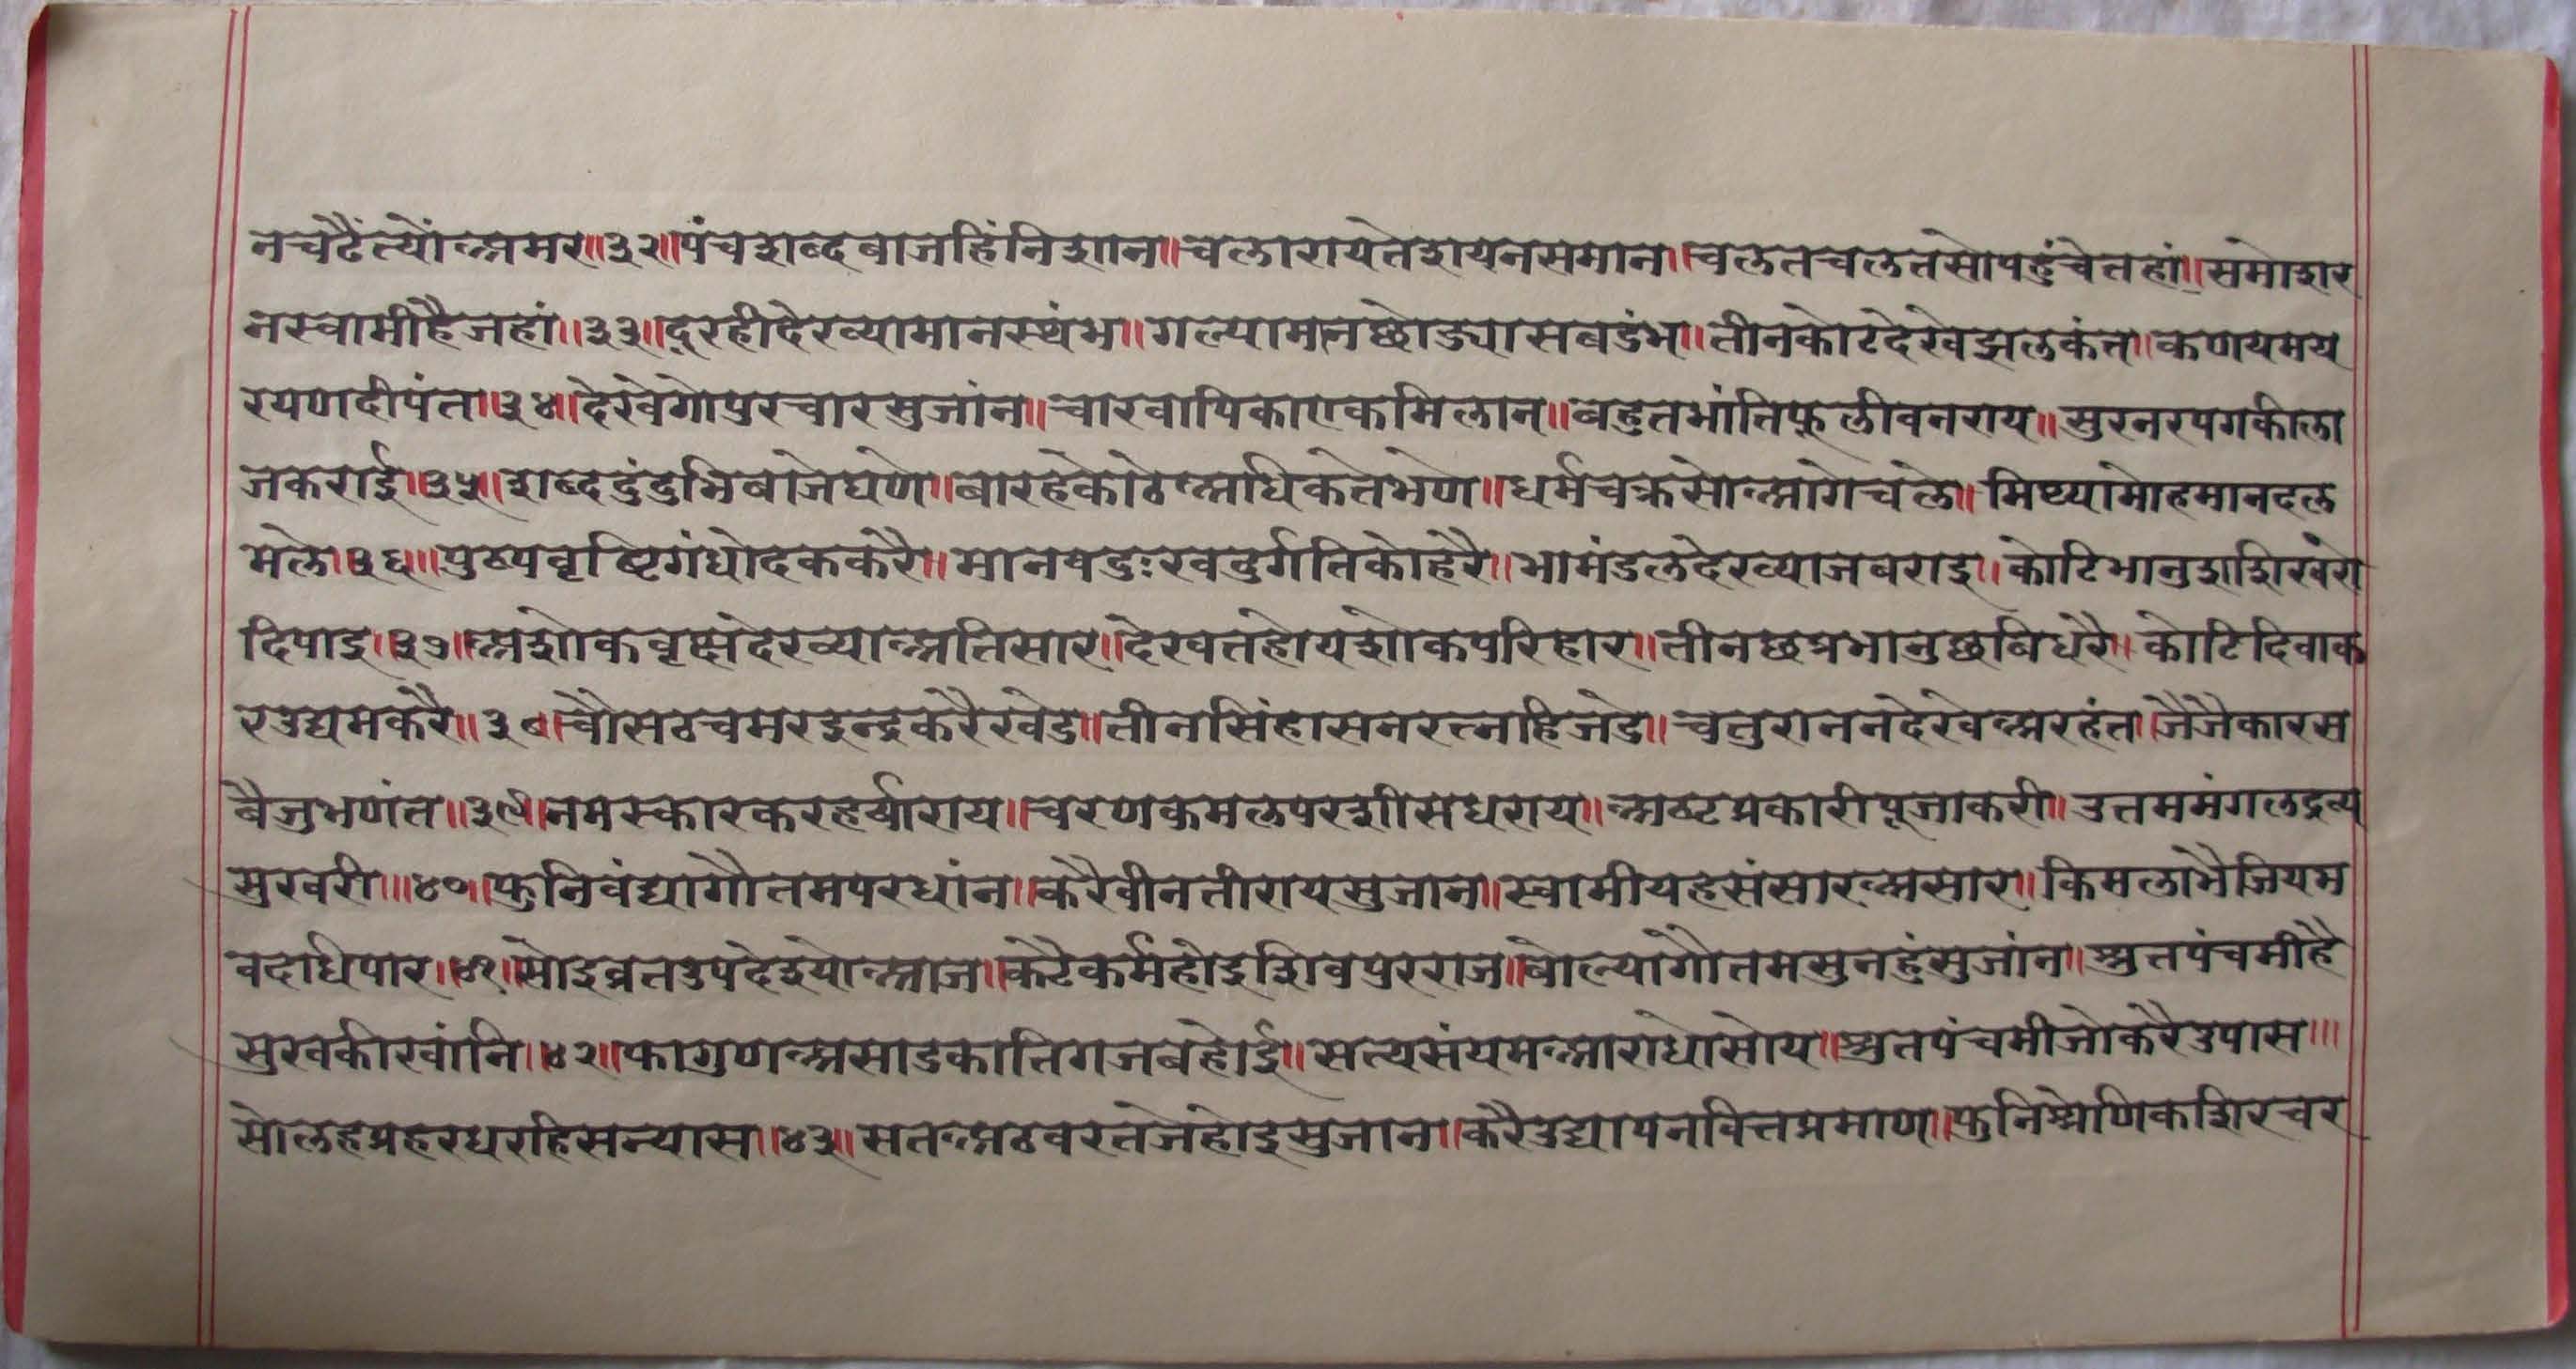 नचटैंत्योंअमर॥३२॥पंचशब्दबाजहिंनिशान॥चलारायतेशयनसमान॥चलतचलतसोपहुंचेतहां॥समोशर
नस्वामीहैजहां॥३३॥दूरहीदेख्यामानस्थंभ॥गल्यामानछोड्यासबडंभ॥तीनकोटदेखेझलकंत॥कणयमय
रयणदीपंत॥३४॥देखेगोपुरचारसुजांन॥चारवापिकाएकमिलान॥बहुतभांतिफूलीवनराय॥सुरनरपगकीला
जकराई॥३५॥शब्ददुंदुभिबाजेघणे॥बारहेकोठेअधिकतेभणे॥धर्मचक्रसोआगेचले॥मिथ्यामोहमानदल
मले॥३६॥पुष्पवृष्टिगंधोदककरै॥मानवदुःखदुर्गतिकोहरै॥भामंडलदेख्याजबराइ॥कोटिभानुशशिखरो
दिपाइ॥३७॥अशोकवृक्षदेख्याअतिसार॥देखतहोयशोकपरिहार॥तीनछत्रभानुछबिधरै॥कोटिदिवाक
रउद्यमकरै॥३८॥चौसठचमरइन्द्रकरैखडे॥तीनसिंहासनरत्नहिजडे॥चतुराननदेखेअरहंत॥जैजैकारस
बैजुभणंत॥३९॥नमस्कारकरहर्यीराय॥चरणकमलपरशीसधराय॥अष्टप्रकारीपूजाकरी॥उत्तममंगलद्रव्य
सुखरी॥४०॥फुनिवंद्यागौतमपरधांन॥करैवीनतीरायसुजान॥स्वामीयहसंसारअसार॥किमलाभैजियम
वदधिपार॥४१॥सोइव्रतउपदेइयोआज॥कटैकर्महोइशिवपुरराज॥बोल्यागौतमसुनहुंसुजांन॥श्रुतपंचमीहै
सुखकीखांनि॥४२॥फागुणअसाडकातिगजबहोई॥सत्यसंयमआराधोसोय॥श्रुतपंचमीजोकरैउपास॥
सोलहप्रहरधरहिसन्यास॥४३॥सतअठवरतजेहोइसुजान॥करैउद्यापनवित्तप्रमाण॥फुनिश्रेणिकशिरचर